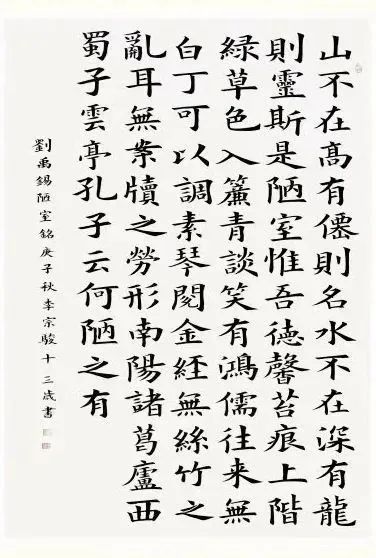 山不在高有僊則名水不在深有龍
則靈斯是陋室惟吾德馨苔痕上階
綠草色入簾青談笑有鴻儒往来無
白丁可以調素琴閱金經無絲竹之
亂耳無案牘之勞形南陽諸葛廬西
蜀子雲亭孔子云何陋之有
劉禹錫陋室銘庚子秋李宗駿十三歲書